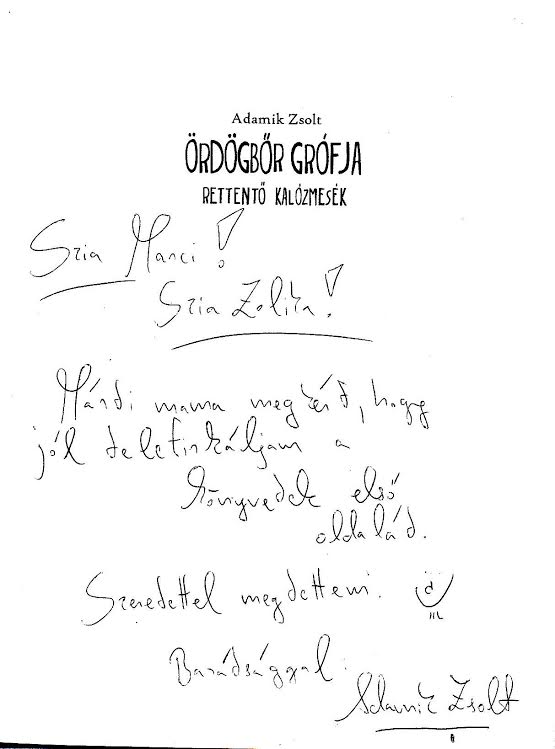 Adamik Zsolt
ÖRDÖGBŐR GRÓFJA
RETTENTŐ KALÓZMESÉK
Szia Marci!
Szia Zolika!
Márti mama megkért, hogy
jól telefirkáljam a
könyvetek első
oldalát.
Szeretettel megtettem.
Barátsággal:
Adamik Zsolt